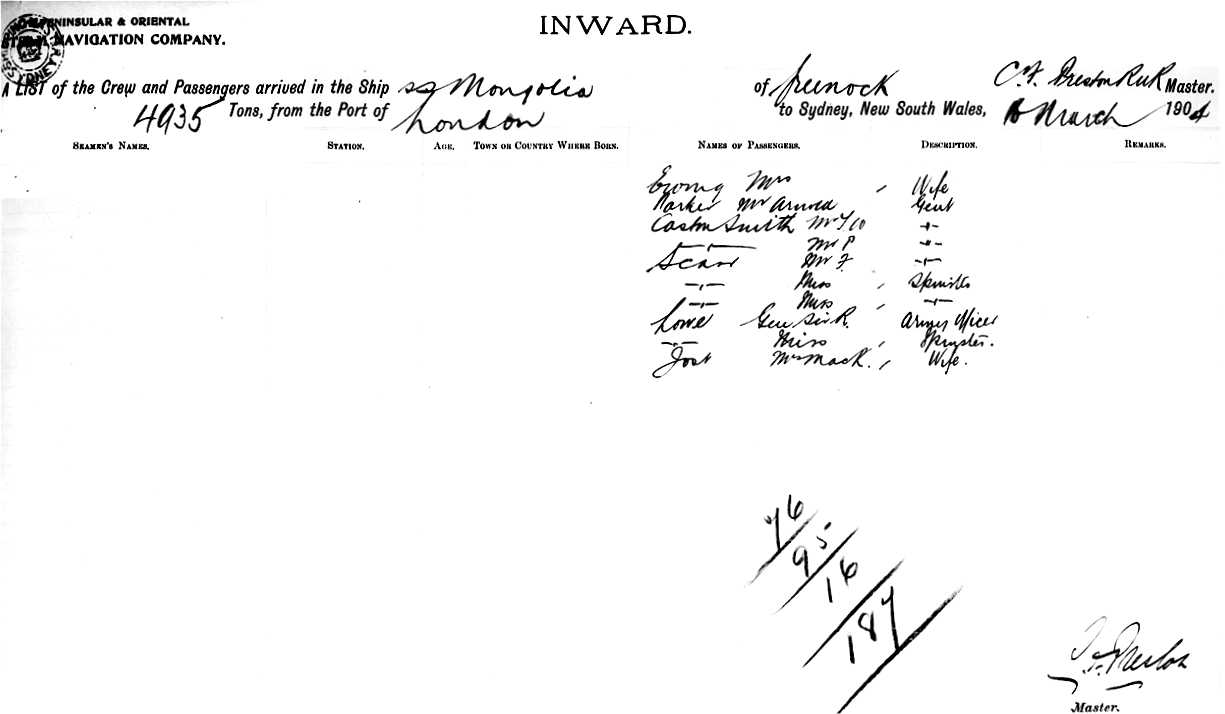 INWARD.
PENINSULAR & ORIENTAL
STEAM NAVIGATION COMPANY.
A LIST of the Crew and Passengers arrived in the Ship SS Mongolia of Greenock C. F. Preston RNR Master.
4935 Tons, from the Port of London to Sydney, New South Wales, 16 March 1904
SEAMEN'S NAMES. STATION. AGE. TOWN OR COUNTRY WHERE BORN. NAMES OF PASSENGERS. DESCRIPTION. REMARKS.
Ewing Mrs , Wife
Mr Arnold Gent
Smith Mr -"-
-"- Mr P -"-
Mr F -"-
-"- Miss , Spinster
-"- Miss , -"-
Lowe Gen Sir R. Army Officer
-"- Miss , Spinster.
Jost Mrs Mack. , Wife.
76
95
16
187
Preston
Master.